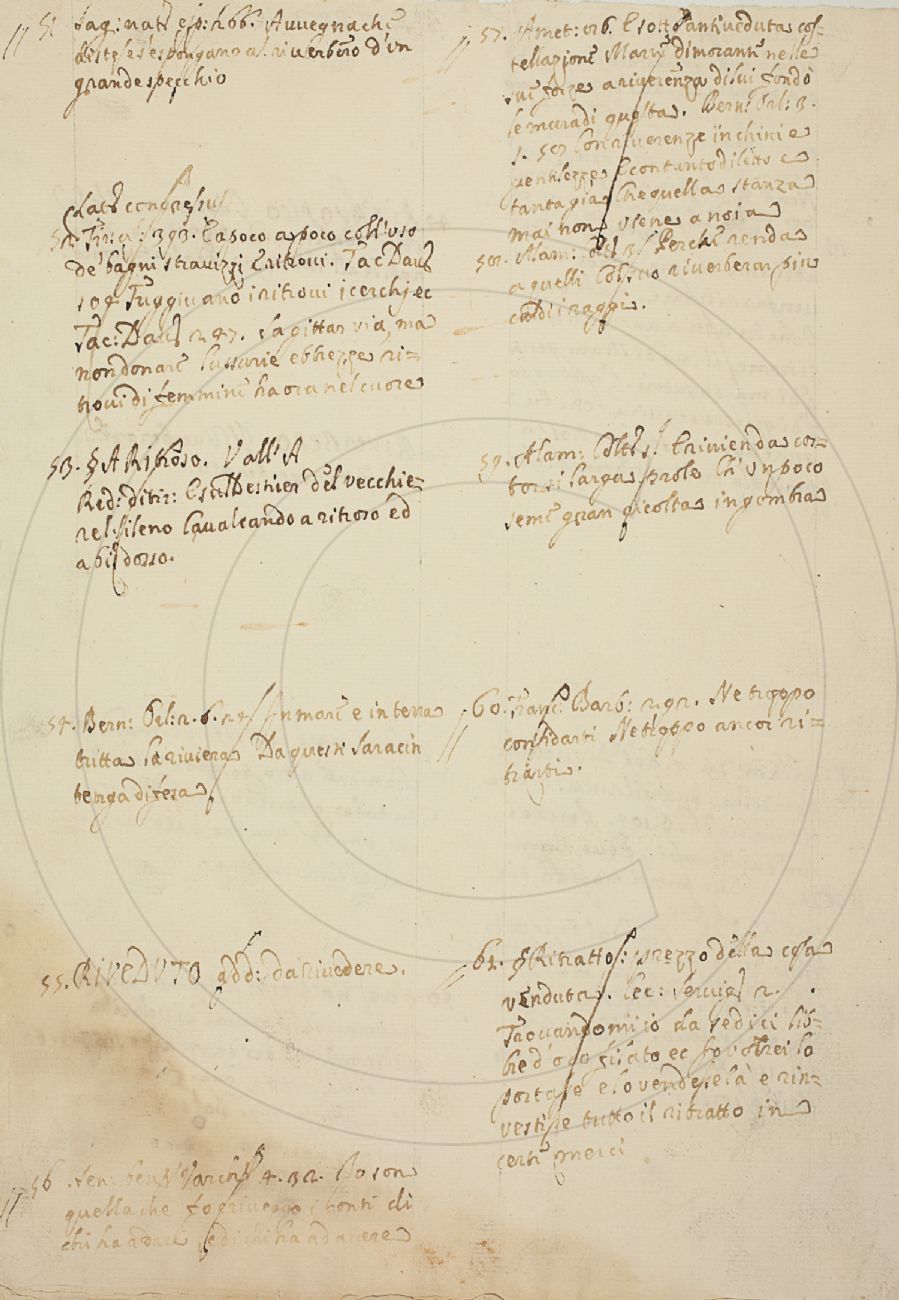 51 Sag: nat: esp: 266. Avvegnache
distese s'espongano al riverbero d'un
grande specchio
52. Fir: as: 393. E a poco a poco coll'uso
de' bagni stravizzi e ritrovi. Tac Dav:
109 Fuggivano i ritrovi i cerchj ec
Tac: Dav: 247. Sagittar via, ma
non donare lussurie ebbrezze ri=
trovi di femmine ha ora nel cuore
53. § A Ritroso. Vall' A
Red: ditir: E sul destrier del vecchie=
rel Sileno Cavalcando a ritroso ed
a bisdosso.
54. Bern: Orl: 2. 6. In mare e in terra
tutta la riviera Da questi Saracin
tenga difesa
55. RIVEDUTO add: da rivedere.
56 Sen: ben: Varch: 4. 32. Io son
quella che fo i conti di
chi ha a dare e di chi ha ad avere
57. Amet: 86. E sotto antiveduta cos=
tellazione Marte dimorante nelle
sue forze a riverenza di lui fondò
le mura di questa. Bern: Orl: 3.
1. 50 Con riverenze inchini e
gentilezze E con tanto diletto e
tanta gioia Che quella stanza
mai non viene a noia
58. Alam: Colt: 3 Perche renda
a quelli Col suo riverberar piu
caldi i raggi.
59. Alam: Colt: 5. E rivienda cor=
torsi larga prole Ch' un poco
seme gran ricolta ingombra
60. Franc: Barb: 292. Ne troppo
confidarti Ne troppo ancor ri=
trarti.
61. § Ritratto: prezzo della cosa
venduta. Cec: Servig: 2.
Trovandomi io da sedici lib=
bre d'oro filato ec s'io volrei lo
portasse e lo vendesse là e rin=
vestisse tutto il ritratto in
certe merci